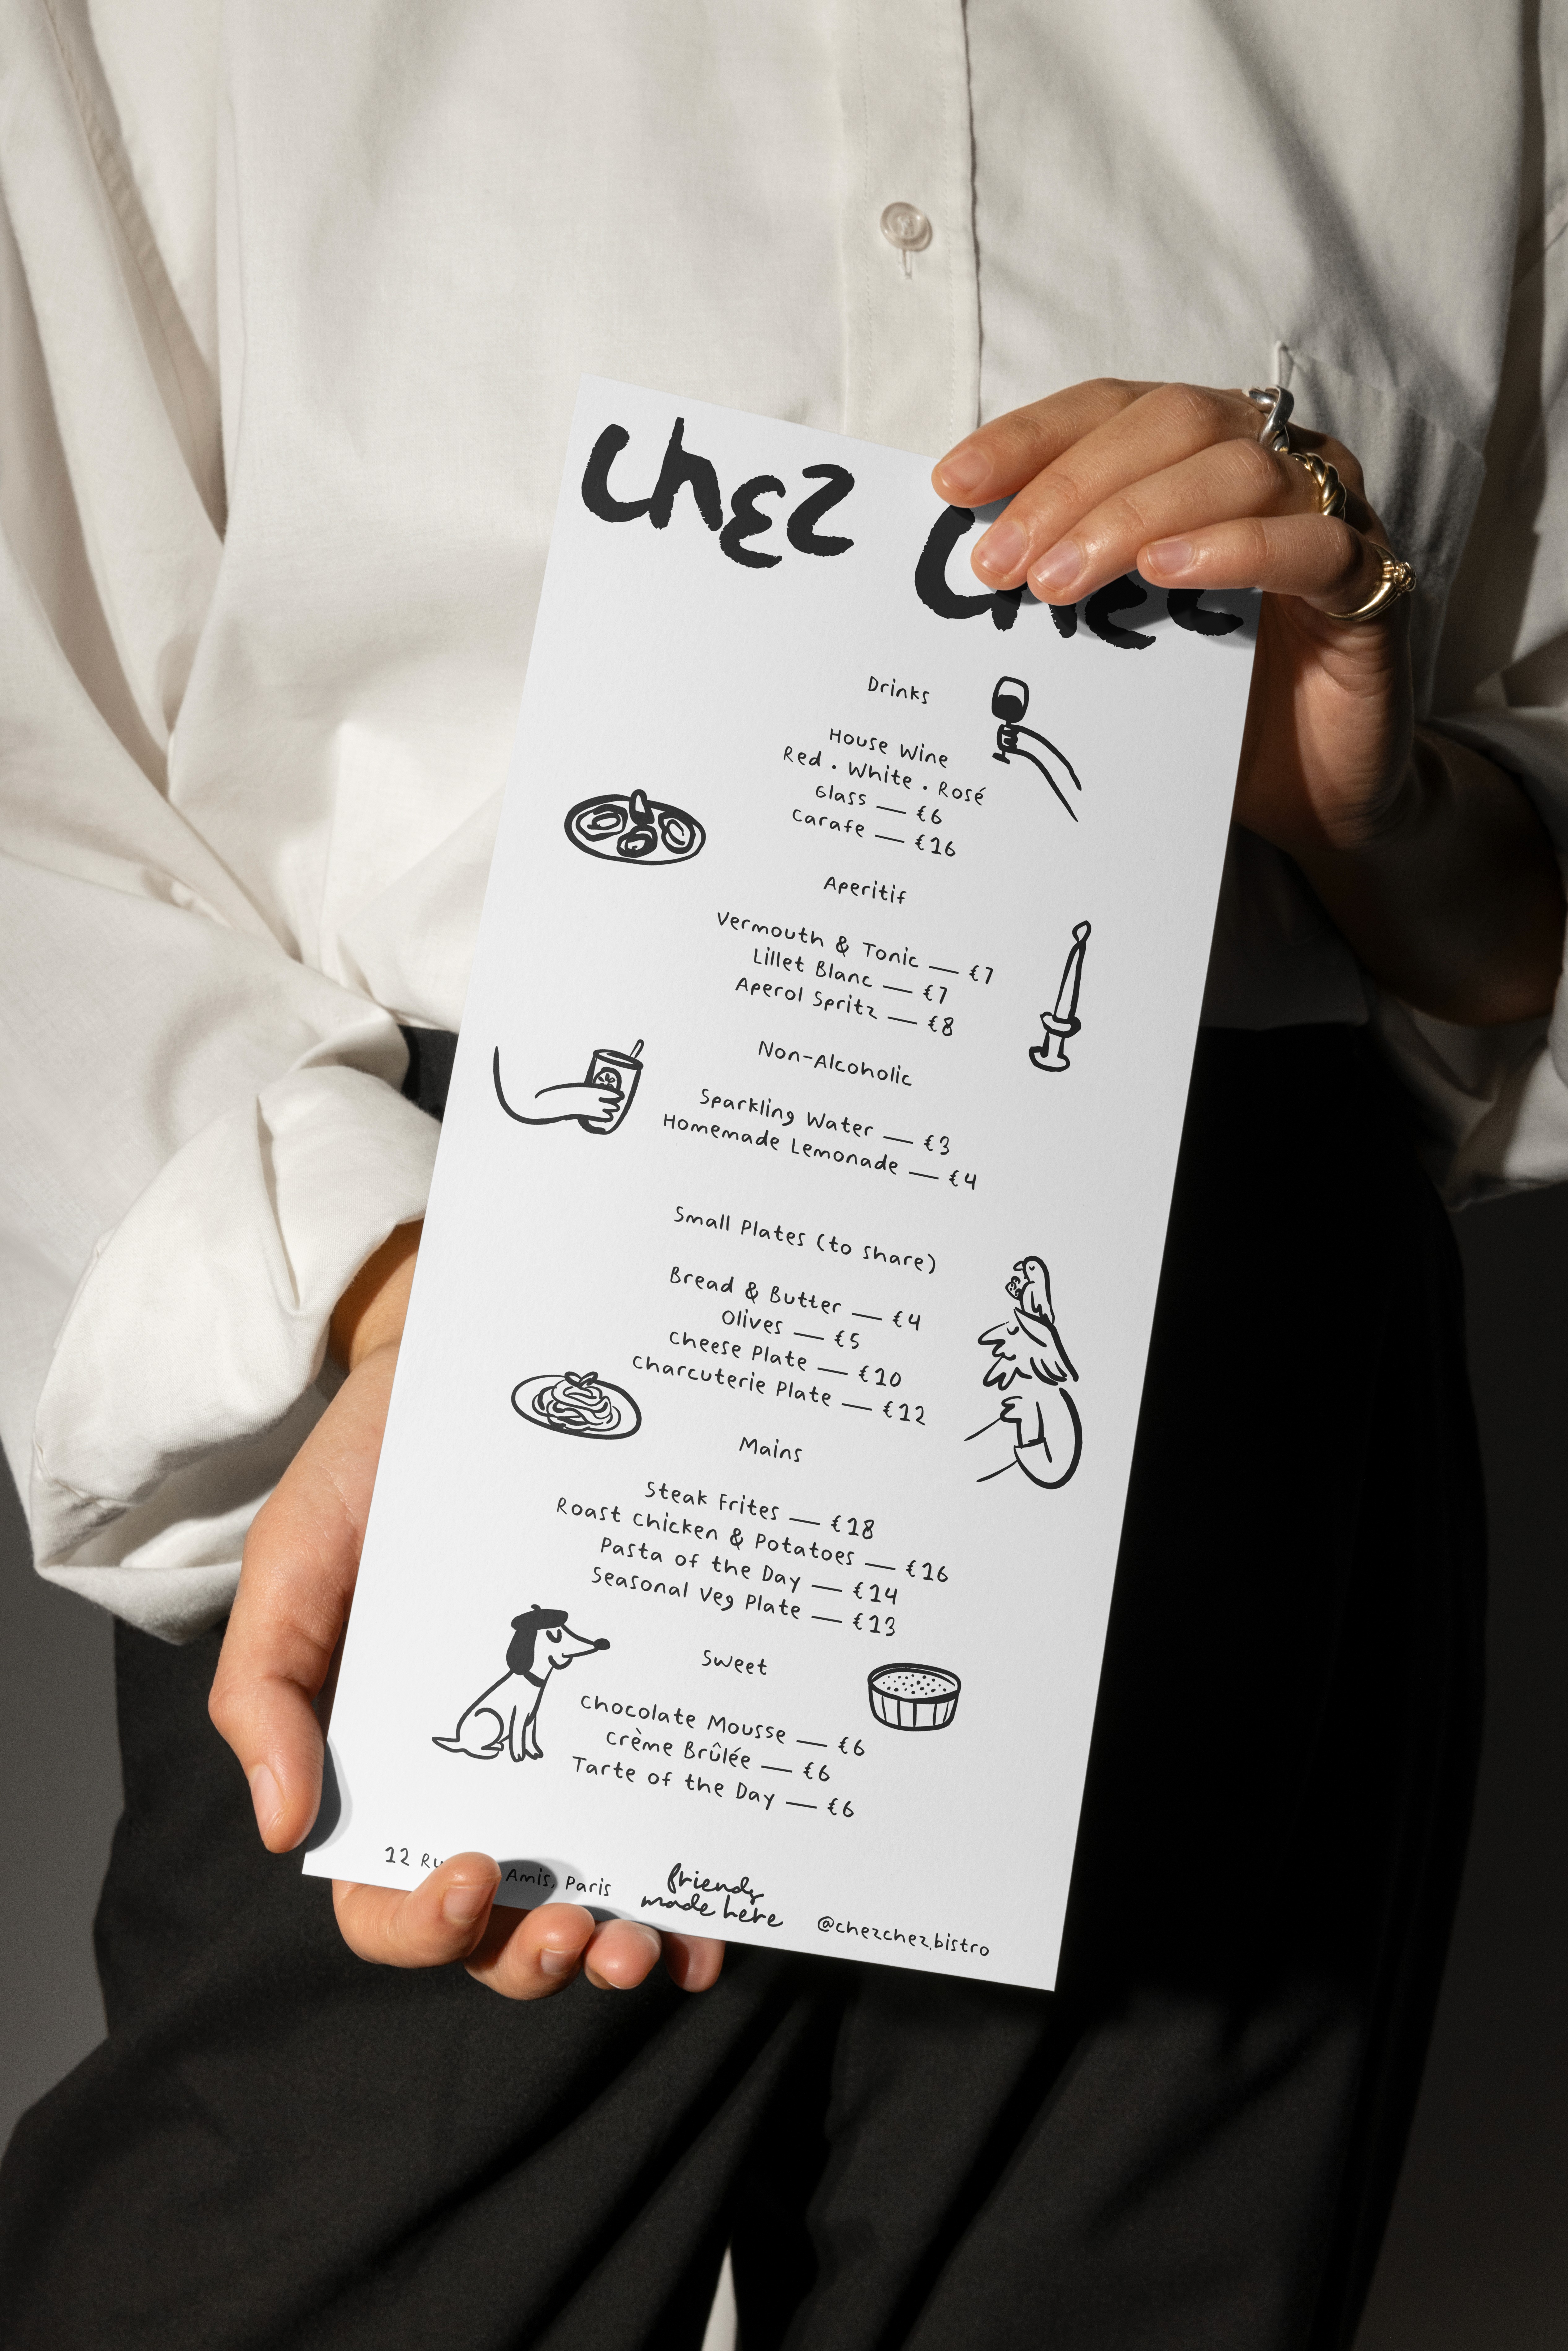 chez chez
Drinks
House Wine
Red · White · Rosé
Glass — €6
Carafe — €16
Aperitif
Vermouth & Tonic — €7
Lillet Blanc — €7
Aperol Spritz — €8
Non-Alcoholic
Sparkling Water — €3
Homemade Lemonade — €4
Small Plates (to share)
Bread & Butter — €4
Olives — €5
Cheese Plate — €10
Charcuterie Plate — €12
Mains
Steak Frites — €18
Roast Chicken & Potatoes — €16
Pasta of the Day — €14
Seasonal Veg Plate — €13
Sweet
Chocolate Mousse — €6
Crème Brûlée — €6
Tarte of the Day — €6
12 Amis, Paris
friends
made here
@chezchez.bistro